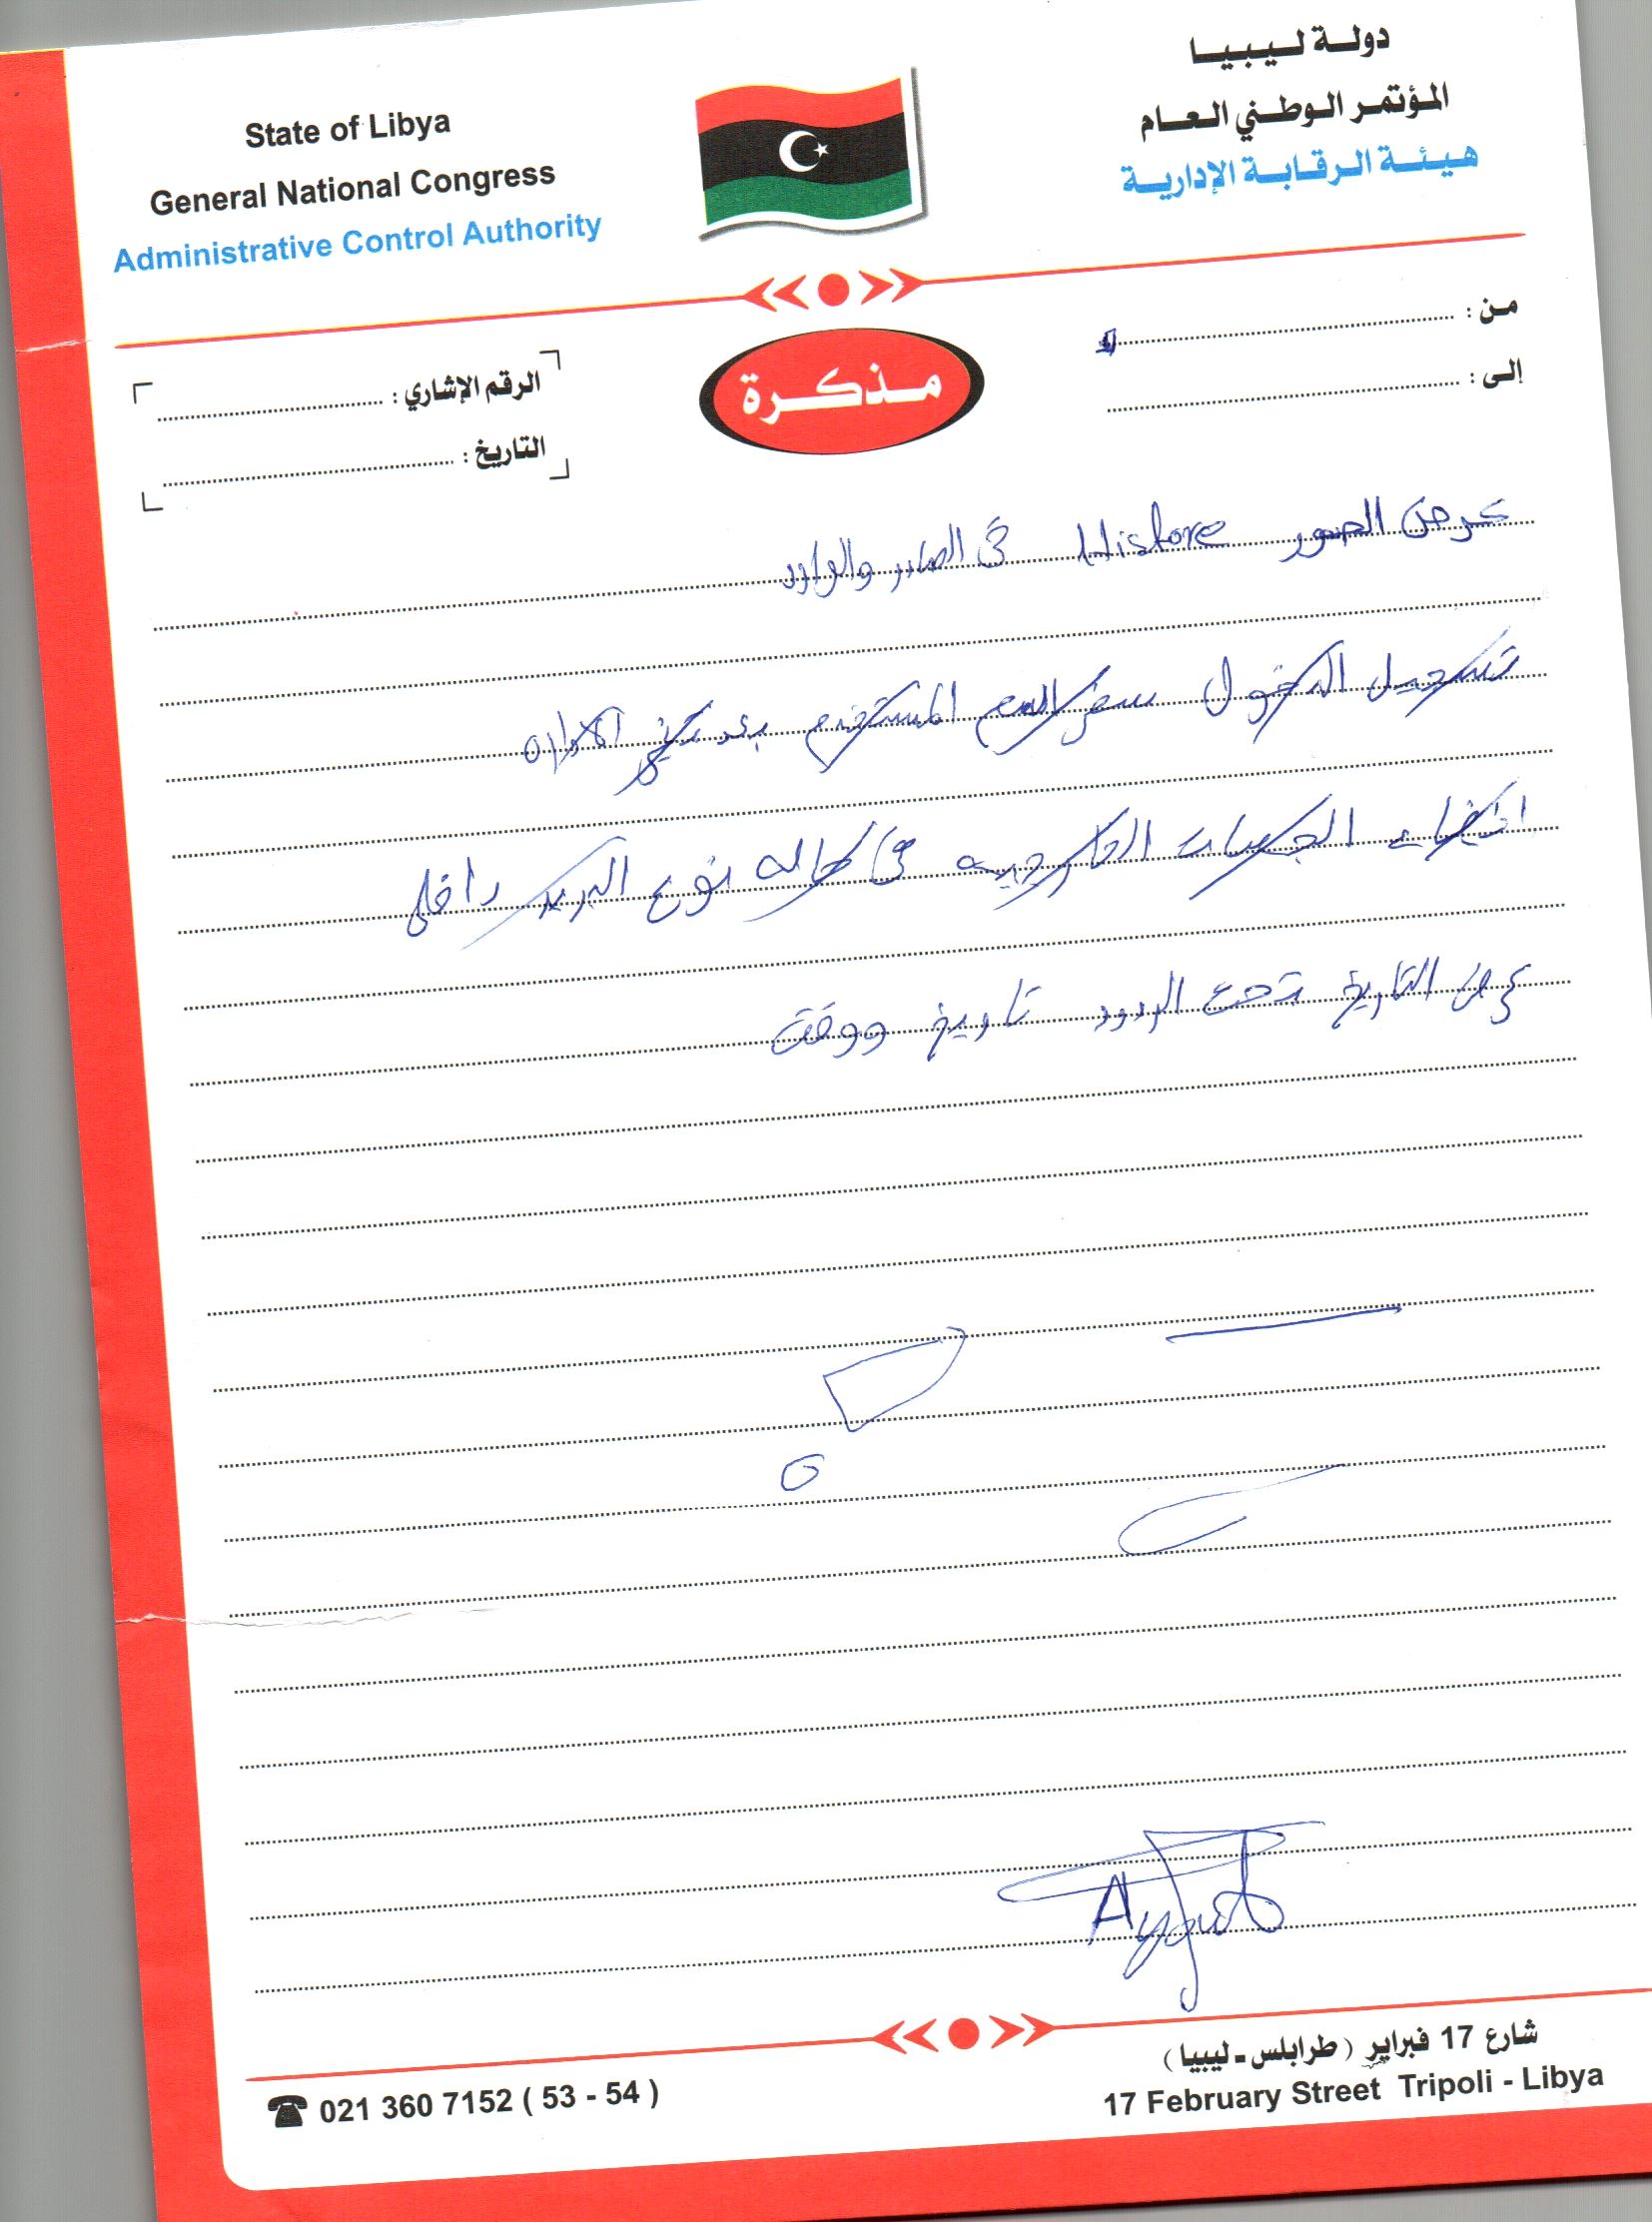 دولة ليبيا
المؤتمر الوطني العام
هيئة الرقابة الإدارية
State of Libya
General National Congress
Administrative Control Authority
من :
إلى :
مذكرة
الرقم الإشاري :
التاريخ :
عرض الصور Histore في الصادر والوارد
تسجيل الدخول اسم المستخدم بعد الادارة
اختفاء الجهات الخارجيه في حاله نوع البريد داخلي
عرض التاريخ تحت الردود تاريخ ووقت
شارع 17 فبراير ( طرابلس - ليبيا )
17 February Street Tripoli - Libya
021 360 7152 ( 53 - 54 )